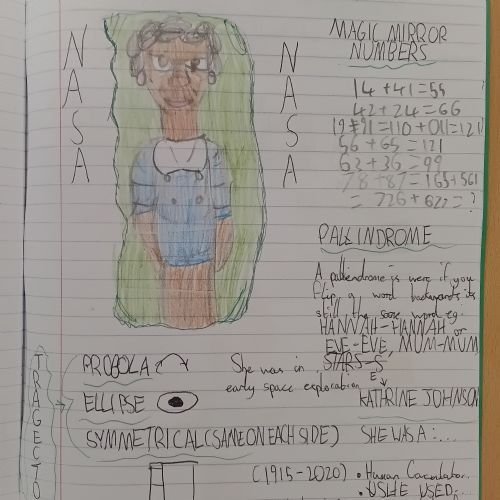 NASA
NASA
MAGIC MIRROR
NUMBERS
14 + 41 = 55
42 + 24 = 66
19 + 91 = 110 + 011 = 121
56 + 65 = 121
63 + 36 = 99
78 + 87 = 165 + 561
= 726 + 627 = ?
PALLINDROME
A pallendrome is were if you
flip a word backwards its
still the same word eg.
HANNAH-HANNAH or
EVE-EVE, MUM-MUM
STARS-S
E
KATHRINE JOHNSON
SHE WAS A:...
• Human
• USHE USED:...
She was in
early space exploration
TRAGECTO
PROBOLA
ELLIPSE
SYMMETRICAL (SAME ON EACH SIDE)
(1915-2020)